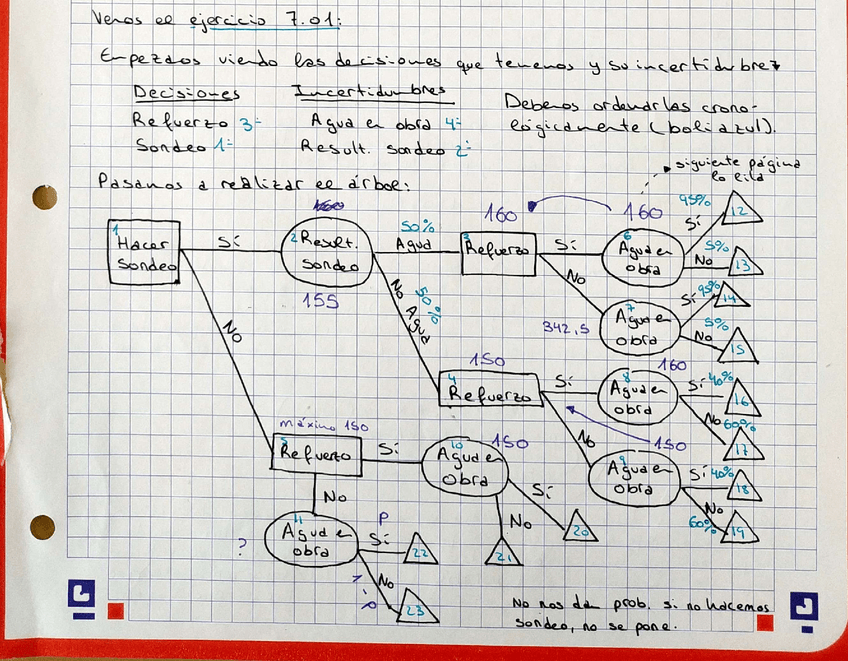 Vemos el ejercicio 7.01:
Empezamos viendo las decisiones que tenemos y su incertidumbre
Decisiones Incertidumbres
Refuerzo 3º Agua en obra 4º
Sondeo 1º Result. sondeo 2º
Debemos ordenarlas crono-
lógicamente (boli azul).
siguiente página
Pasamos a realizar el árbol:
160 160 160
95% Sí 12
1 Hacer sondeo Sí 2 Result. sondeo 50% Agua 3 Refuerzo Sí 6 Agua en obra
5% No 13
155
No 50% No Agua
No 7 Agua en obra Sí 95% 14
342,5 5% No 15
150 160
4 Refuerzo Sí 8 Agua en obra Sí 40% 16
No 60% 17
máximo 150 150 150
5 Refuerzo Sí 10 Agua en obra
No 9 Agua en obra Sí 40% 18
No 60% 19
No Sí 20
No 21
? 11 Agua en obra P Sí 22
1-P No 23
No nos dan prob. si no hacemos
sondeo, no se pone.